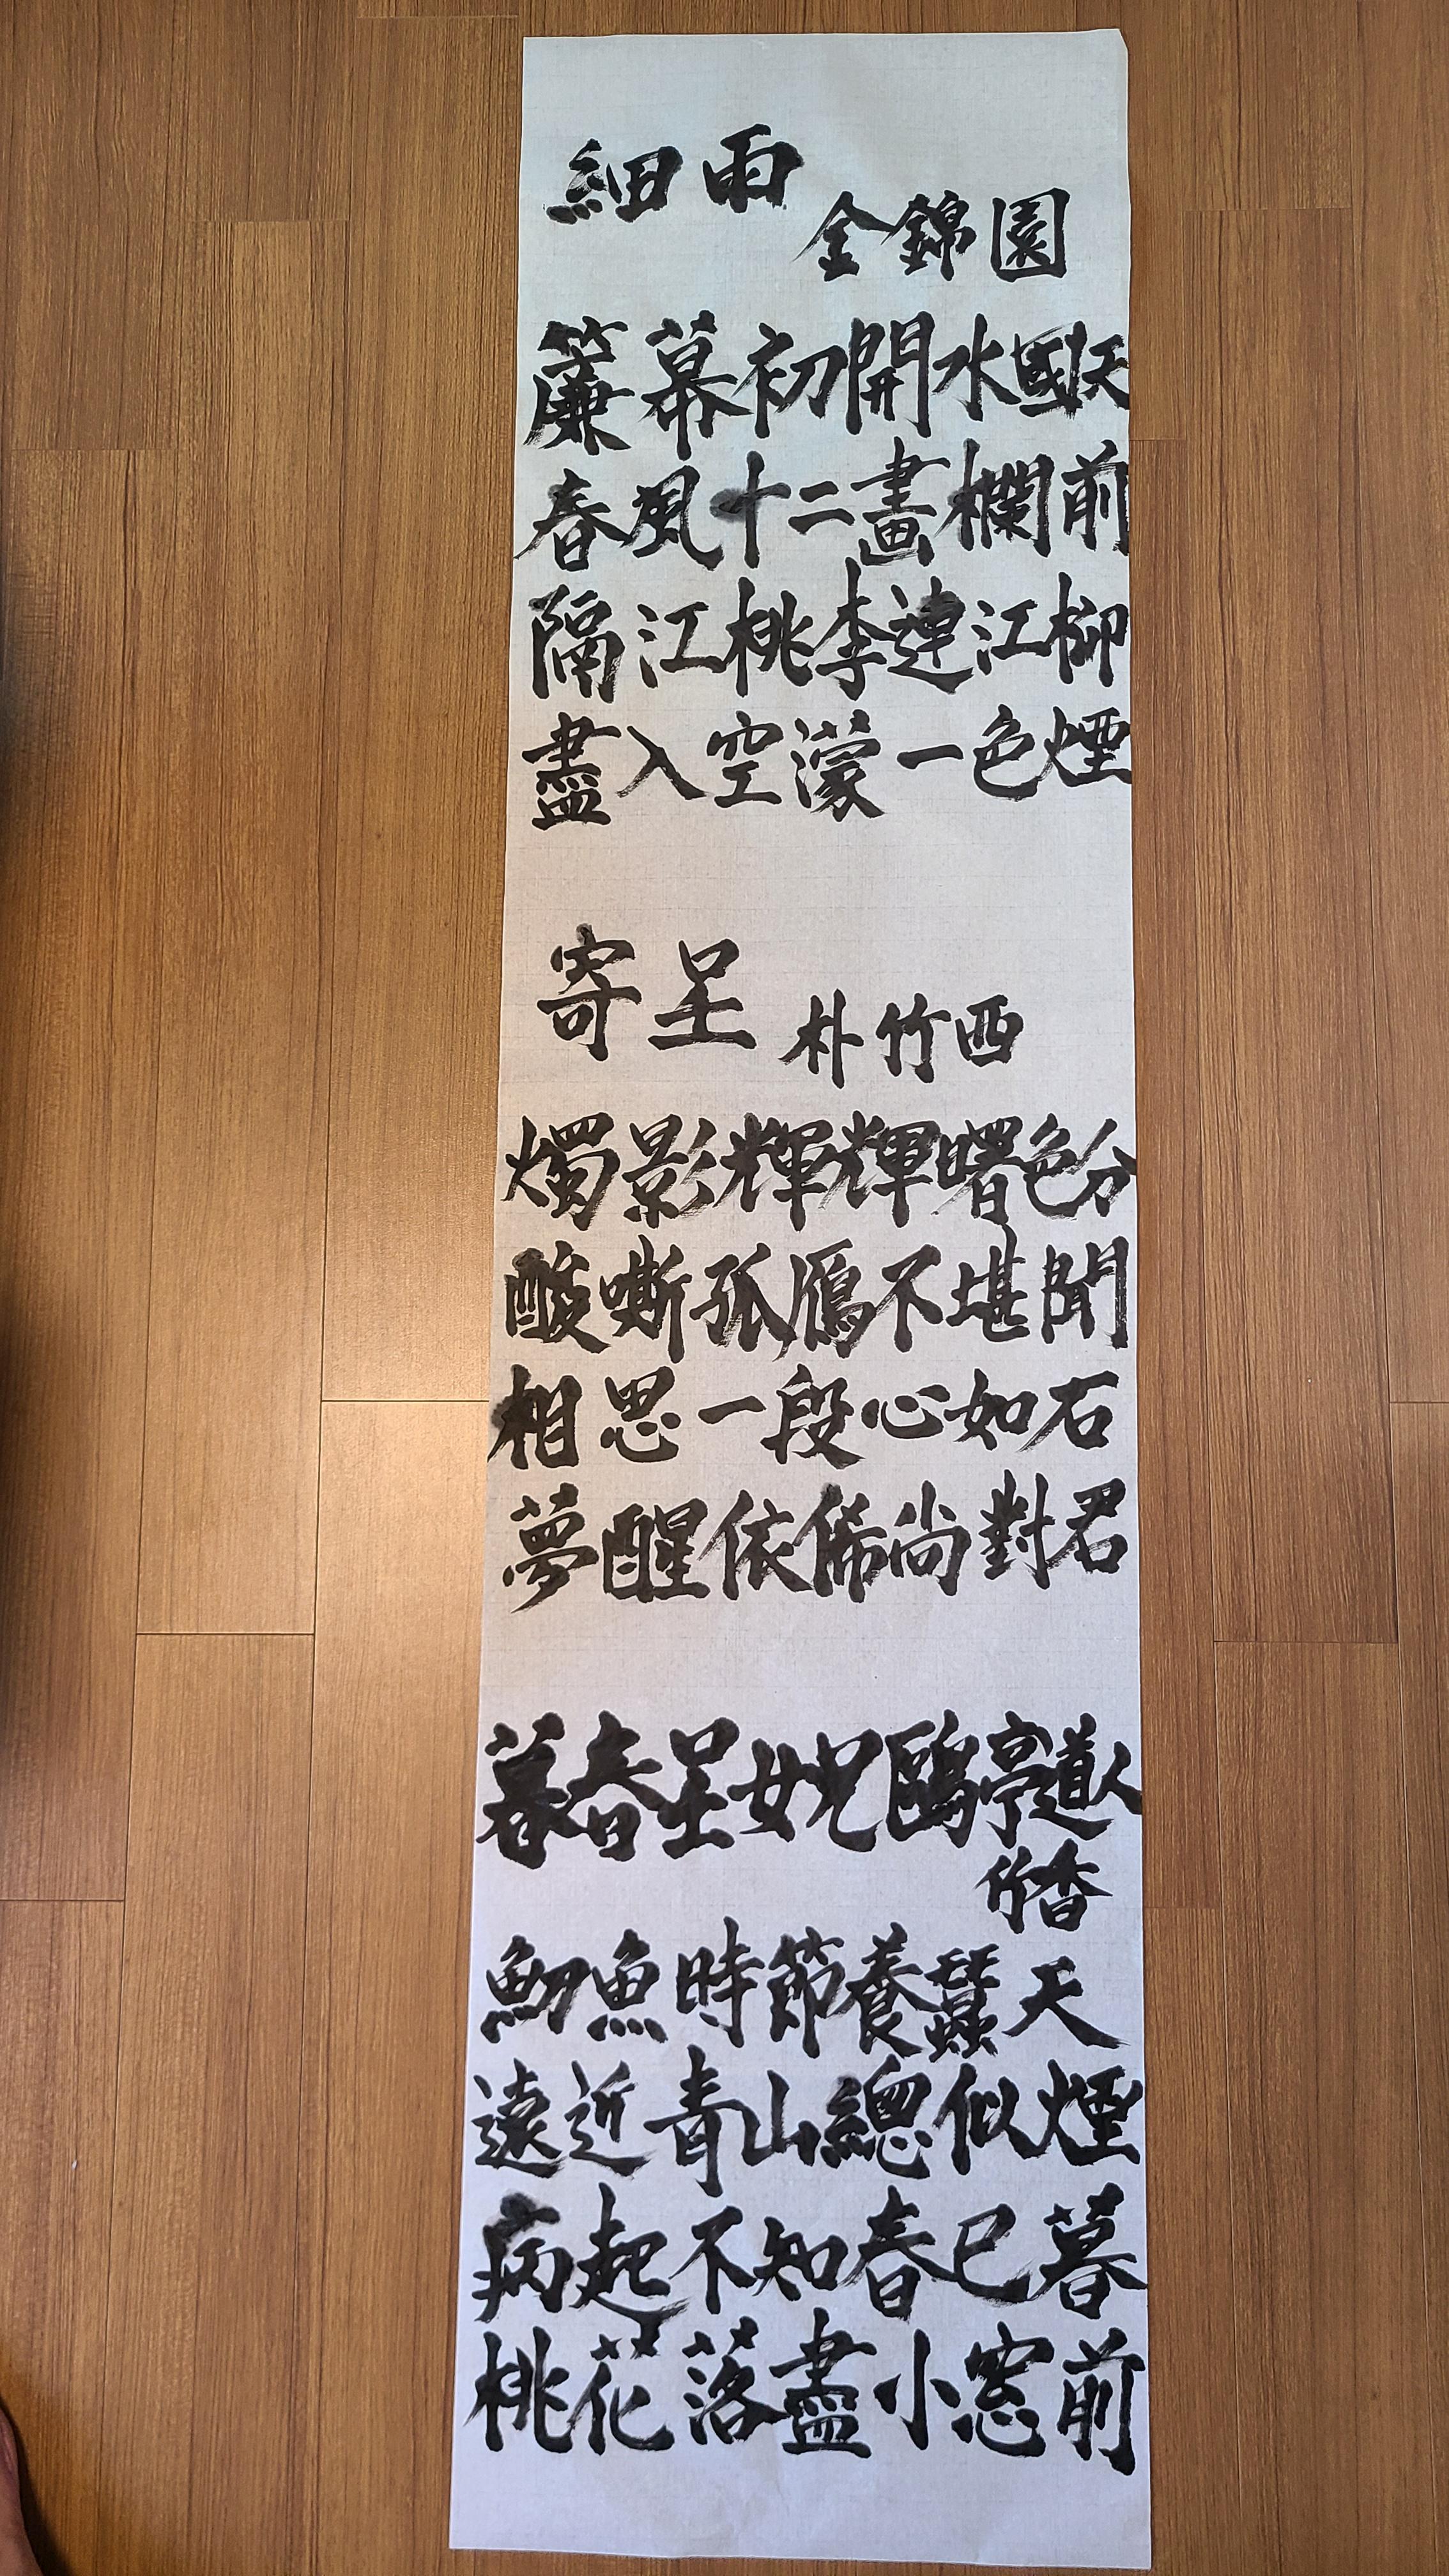 細雨
金錦園
簾幕初開水國天
春風十二畫欄前
隔江桃李連江柳
盡入空濛一色煙
寄呈
朴竹西
燭影輝輝曙色分
酸嘶孤鴈不堪聞
相思一段心如石
夢醒依俙尚對君
暮春呈女兄鷗亭道人
竹香
魛魚時節養蠶天
遠近青山總似煙
病起不知春已暮
桃花落盡小窓前